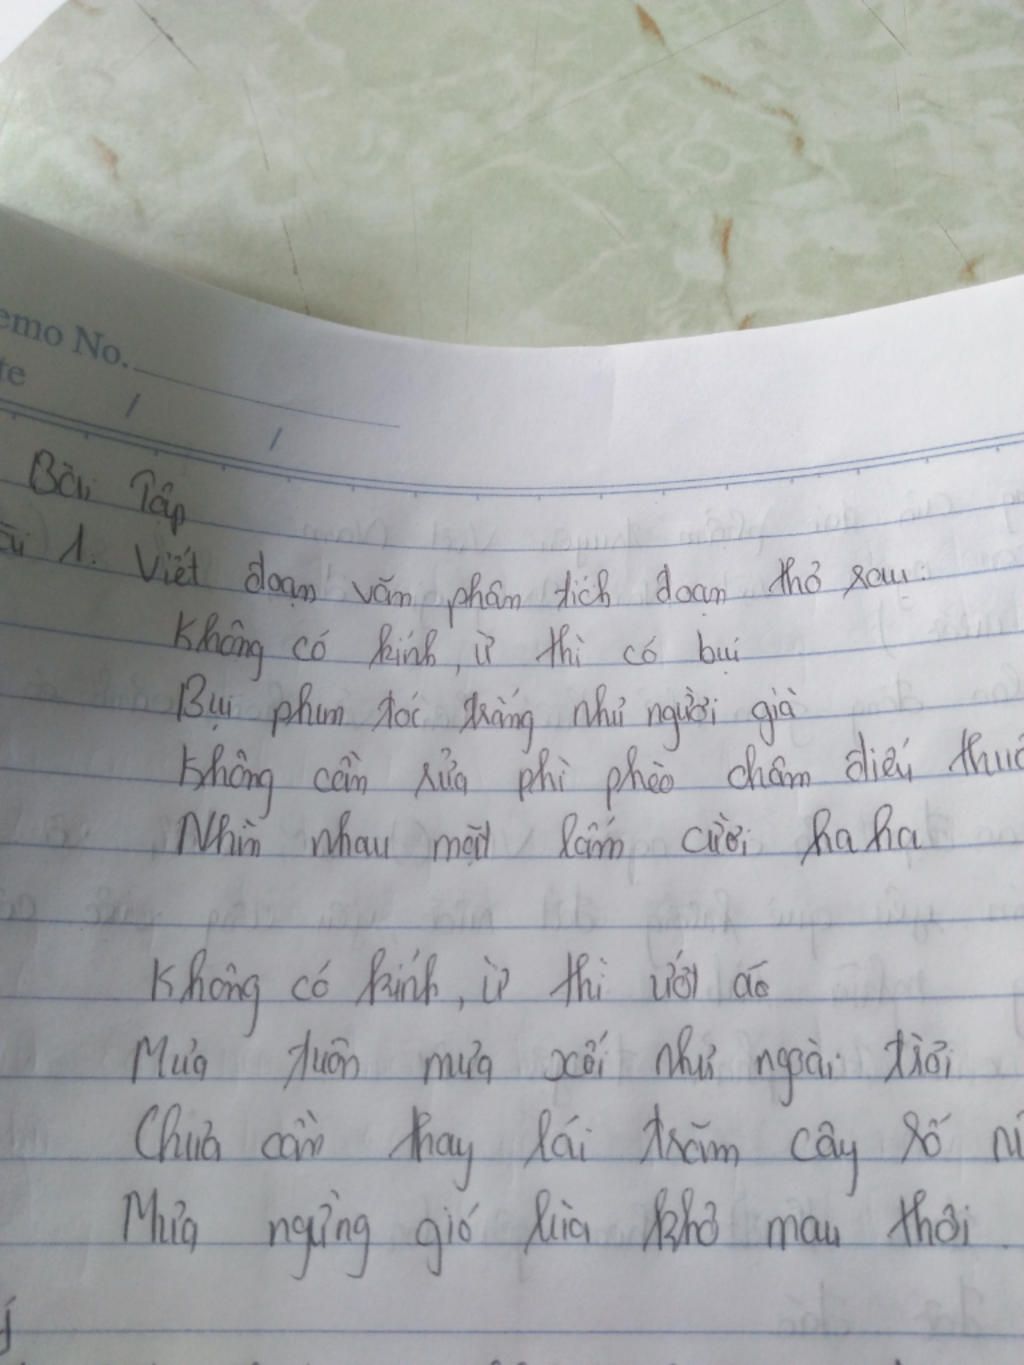 emo No.
te / /
Bài Tập
1. Viết đoạn văn phân tích đoạn thơ sau:
Không có kính, ừ thì có bụi
Bụi phun tóc trắng như người già
Không cần rửa phì phèo châm điếu thuố
Nhìn nhau mặt lấm cười ha ha
Không có kính, ừ thì ướt áo
Mưa tuôn mưa xối như ngoài trời
Chưa cần thay lái trăm cây số n
Mưa ngừng gió lùa khô mau thôi